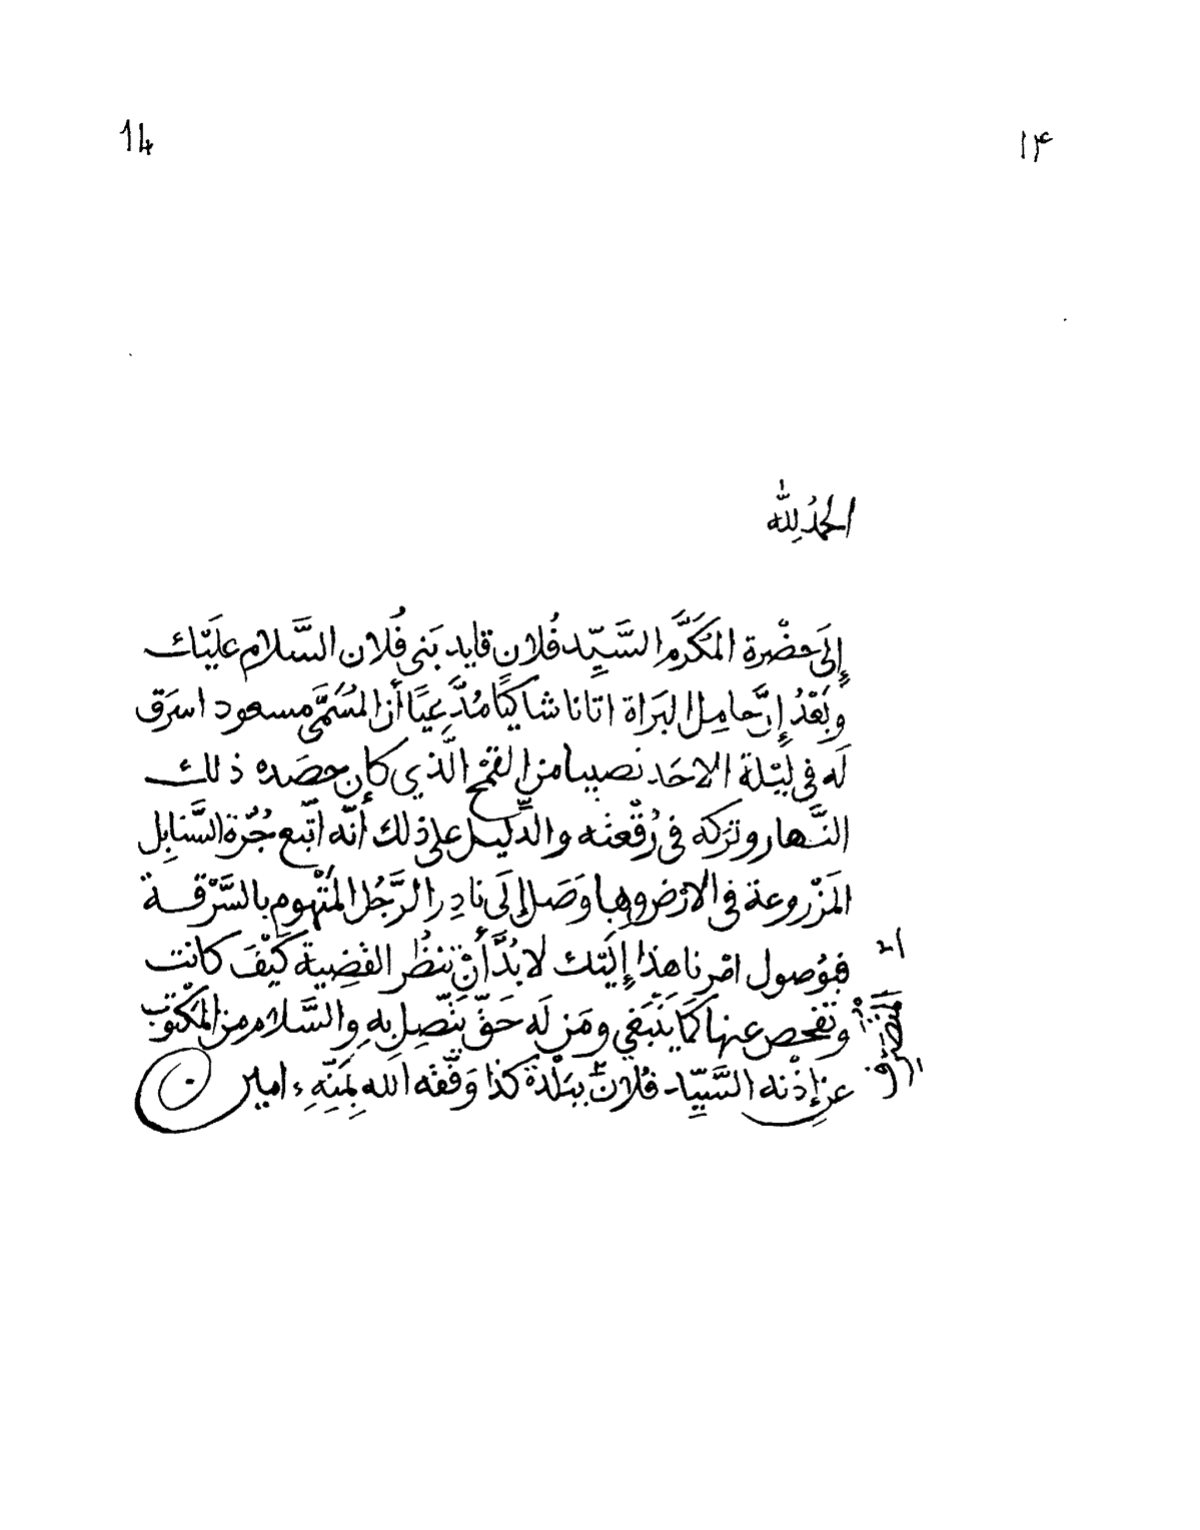 14
١۴
الحمدُ لِلّٰه
إِلَى حَضْرة المُكَرَّم السَّيِّد فُلان قايد بَنى فُلان السَّلام عَلَيْك
وَبَعْدُ إِنَّ حامِل البَرَاة اتانا شاكيًا مُدَّعِيًا أن المُسَمَّى مسعود اسرَق
لَه فى لَيْلة الاحَد نصيبا من القَمْح الّذي كان حصَده ذلك
النَّهار وتركه فى رُقْعته والدَّليل على ذلك أنّه اتّبع جُرّة السَّنابِل
المَزْروعة فى الارْض وبها وَصَل إلَى نادِر الرَّجُل المَتْهوم بالسَّرْقة
فبوُصول امْرنا هٰذا إِلَيْك لا بُدَّ أَنْ تنظُر القضِية كَيْفَ كانت
وتفحص عنها كَمَا يَنْبَغي ومَن لَه حَقّ يَتّصِل بِه والسَّلام من المَكْتوب
عن إِذْنه السَّيِّد فُلان بِبَلْدة كذا وَفّقه الله بِمَنِّهِ ء امين
المُتَصَرِّف